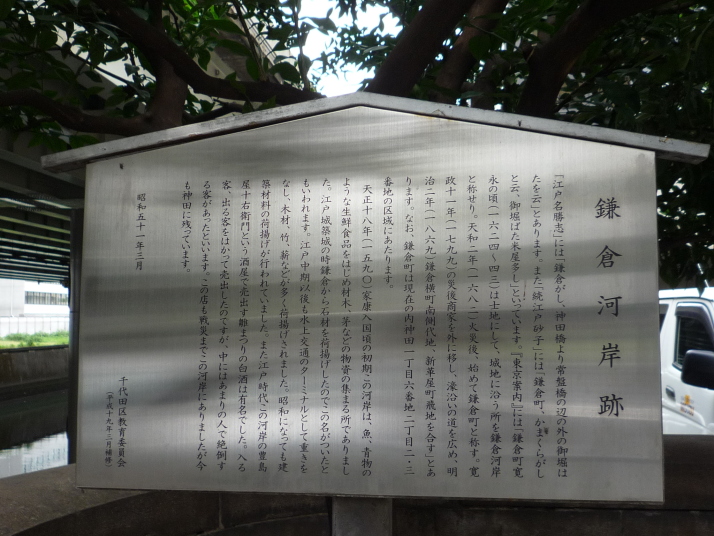 鎌倉河岸跡
『江戸名勝志』には「鎌倉がし、神田橋より常盤橋の辺の外の御堀は
たを云」とあります。また『続江戸砂子』には「鎌倉町、かまくらがし
と云、御堀ばた米屋多し」といっています。『東京案内』には「鎌倉町寛
永の頃(一六二四〜四三)は士地にして、城地に沿う所を鎌倉河岸
と称せり。天和二年(一六八二)火災後、始めて鎌倉町と称す。寛
政十一年(一七九九)の災後商家を外に移し、濠沿いの道を広め、明
治二年(一八六九)鎌倉横町南側代地、新革屋町飛地を合す」とあ
ります。なお、鎌倉町は現在の内神田一丁目六番地、二丁目二・三
番地の区域にあたります。
天正十八年(一五九〇)家康入国頃の初期、この河岸は、魚、青物の
ような生鮮食品をはじめ材木、茅などの物資の集まる所でありまし
た。江戸城築城の時鎌倉から石材を荷揚げしたのでこの名がついたと
もいわれます。江戸中期以後も水上交通のターミナルとして重きを
なし、木材、竹、薪などが多く荷揚げされました。昭和になっても建
築材料の荷揚げが行われていました。また江戸時代、この河岸の豊島
屋十右衛門という酒屋で売出す雛まつりの白酒は有名でした。入る
客、出る客をはかって売出したのですが、中にはあまりの人で絶倒す
る客があったといいます。この店も戦災までこの河岸にありましたが今
も神田に残っています。
昭和五十一年三月
千代田区教育委員会
(平成十九年三月補修)